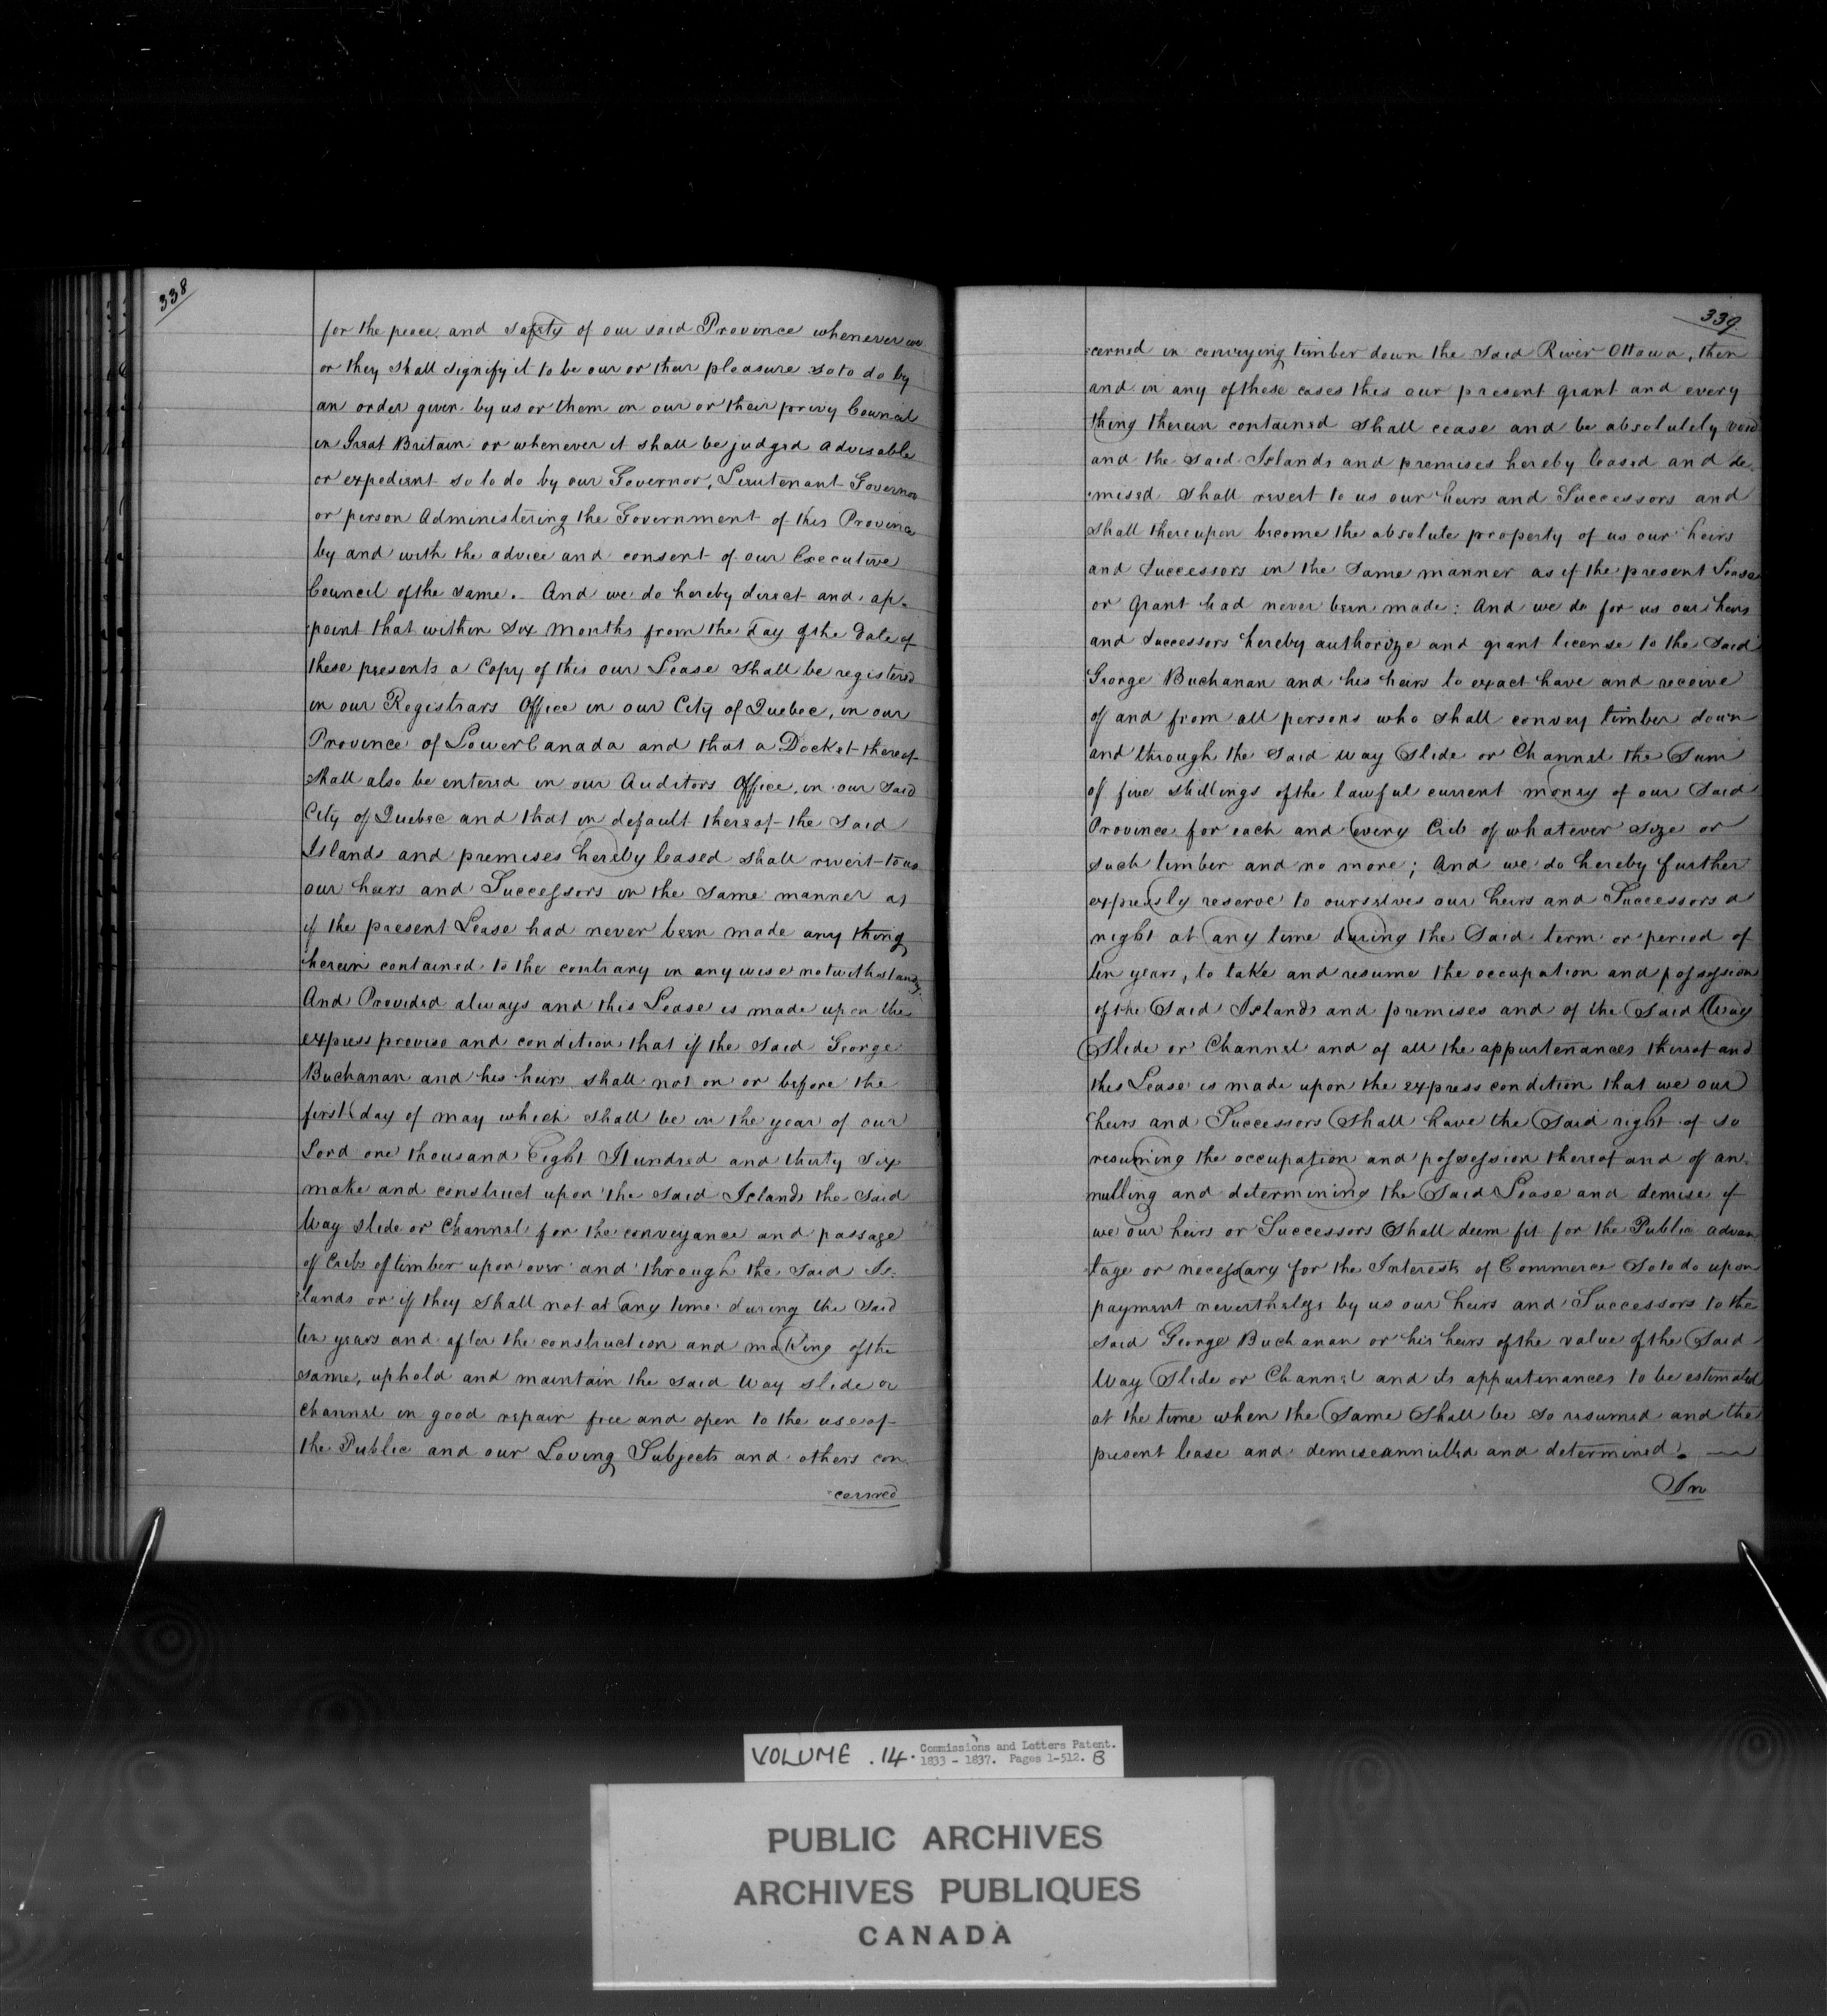 338
for the peace and safety of our said Province whenever we
or they shall signify it to be our or their pleasure so to do by
an order given by us or them in our or their privy Council
in Great Britain or whenever it shall be judged advisable
or expedient so to do by our Governor, Lieutenant Governor
or person Administering the Government of this Province
by and with the advice and consent of our Executive
Council of the same. And we do hereby direct and ap-
:point that within Six Months from the day of the date of
these presents a Copy of this our Lease shall be registered
in our Registrars Office in our City of Quebec, in our
Province of Lower Canada and that a Docket thereof
shall also be entered in our Auditors Office, in our Said
City of Quebec and that in default thereof the Said
Islands and premises hereby leased shall revert to us
our heirs and Successors in the Same manner as
if the present Lease had never been made any thing
herein contained to the contrary in any wise notwithstandg.
And Provided always and this Lease is made upon the
express proviso and condition that if the Said George
Buchanan and his heirs shall not on or before the
first day of May which shall be in the year of our
Lord one thousand Eight Hundred and thirty Six
make and construct upon the Said Islands the Said
Way slide or Channel for the conveyance and passage
of Cribs of timber upon over and through the Said Is-
:lands or if they shall not at any time during the Said
ten years and after the construction and making of the
same, uphold and maintain the Said Way slide or
Channel in good repair free and open to the use of
the Public and our Loving Subjects and others con-
:cerned
339
:cerned in conveying timber down the Said River Ottawa, then
and in any of these cases this our present grant and every
thing therein contained shall cease and be absolutely void
and the said Islands and premises hereby leased and de-
:mised shall revert to us our heirs and Successors and
shall thereupon become the absolute property of us our heirs
and Successors in the Same manner as if the present Lease
or Grant had never been made: And we do for us our heirs
and Successors hereby authorize and grant license to the Said
George Buchanan and his heirs to exact have and receive
of and from all persons who shall convey timber down
and through the Said way Slide or Channel the Sum
of five shillings of the lawful current money of our Said
Province for each and every Crib of whatever Size or
such timber and no more; And we do hereby further
expressly reserve to ourselves our heirs and Successors a
right at any time during the Said term or period of
ten years, to take and resume the occupation and possession
of the Said Islands and premises and of the Said Way
Slide or Channel and of all the appurtenances thereof and
this Lease is made upon the express condition that we our
heirs and Successors Shall have the Said right of so
resuming the occupation and possession thereof and of an-
nulling and determining the Said Lease and demise if
we our heirs or Successors Shall deem fit for the Public advan
tage or necessary for the Interests of Commerce So to do upon
payment nevertheless by us our heirs and Successors to the
said George Buchanan or his heirs of the value of the Said
Way Slide or Channel and its appurtenances to be estimated
at the time when the Same Shall be so resumed and the
present lease and demise annulled and determined.
In
VOLUME .14. Commissions and Letters Patent.
1833 - 1837. Pages 1-512. B
PUBLIC ARCHIVES
ARCHIVES PUBLIQUES
CANADA